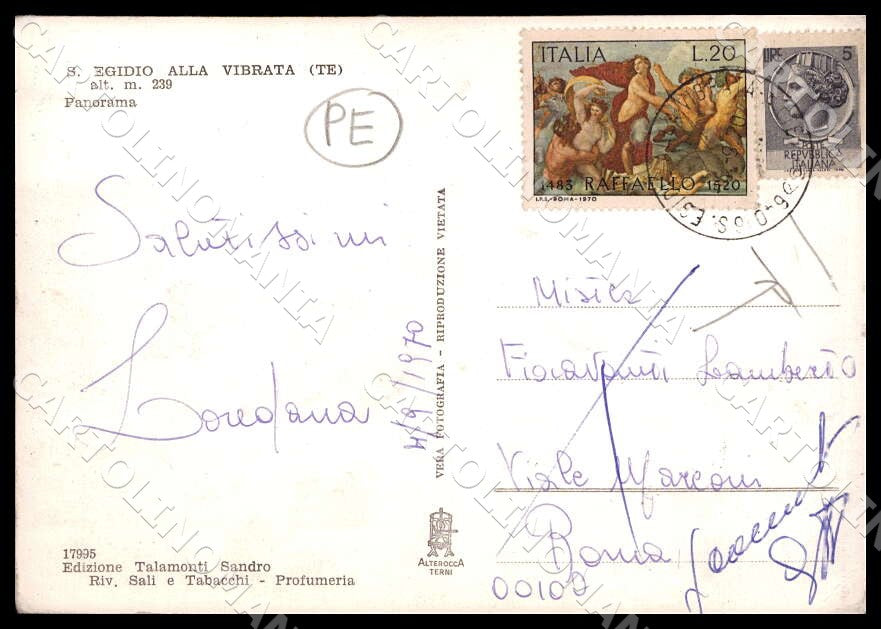 S. EGIDIO ALLA VIBRATA (TE)
alt. m. 239
Panorama
PE
Salutissimi
Loredana
4/8/1970
VERA FOTOGRAFIA - RIPRODUZIONE VIETATA
17995
Edizione Talamonti Sandro
Riv. Sali e Tabacchi - Profumeria
ALTEROCCA
TERNI
ITALIA L.20
1483 RAFFAELLO 1520
I.P.S.-ROMA-1970
LIRE 5
REPVBBLICA
ITALIANA
Fioravanti Lamberto
Viale Marconi
Roma
00102
CARTOLINOMANIA